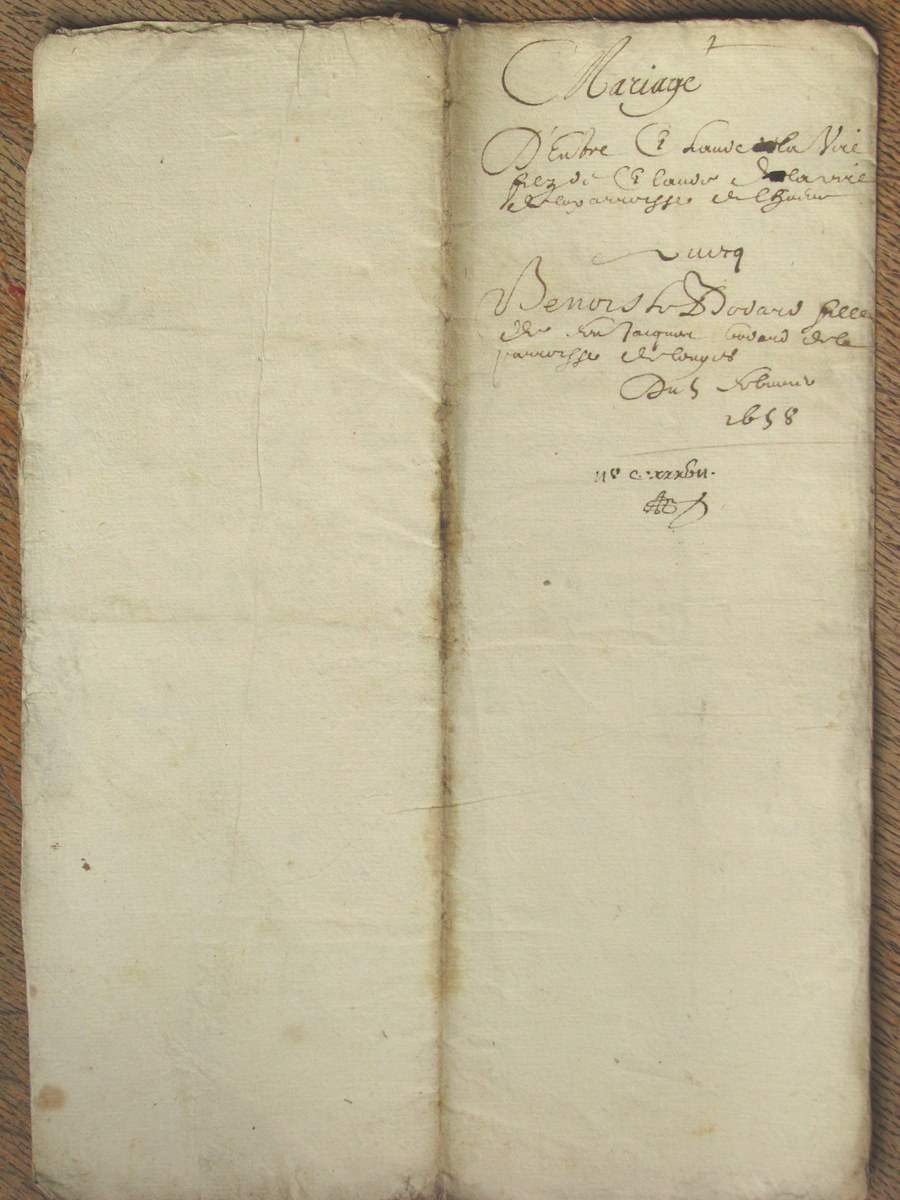 Mariage
D'Entre Claude la Vie
filz de Claude de la vie
de la parroisse de
avecq
Benoiste Godard fille
de feu Jacques Godard de la
parroisse de longes
Du 5 febvrier
1658